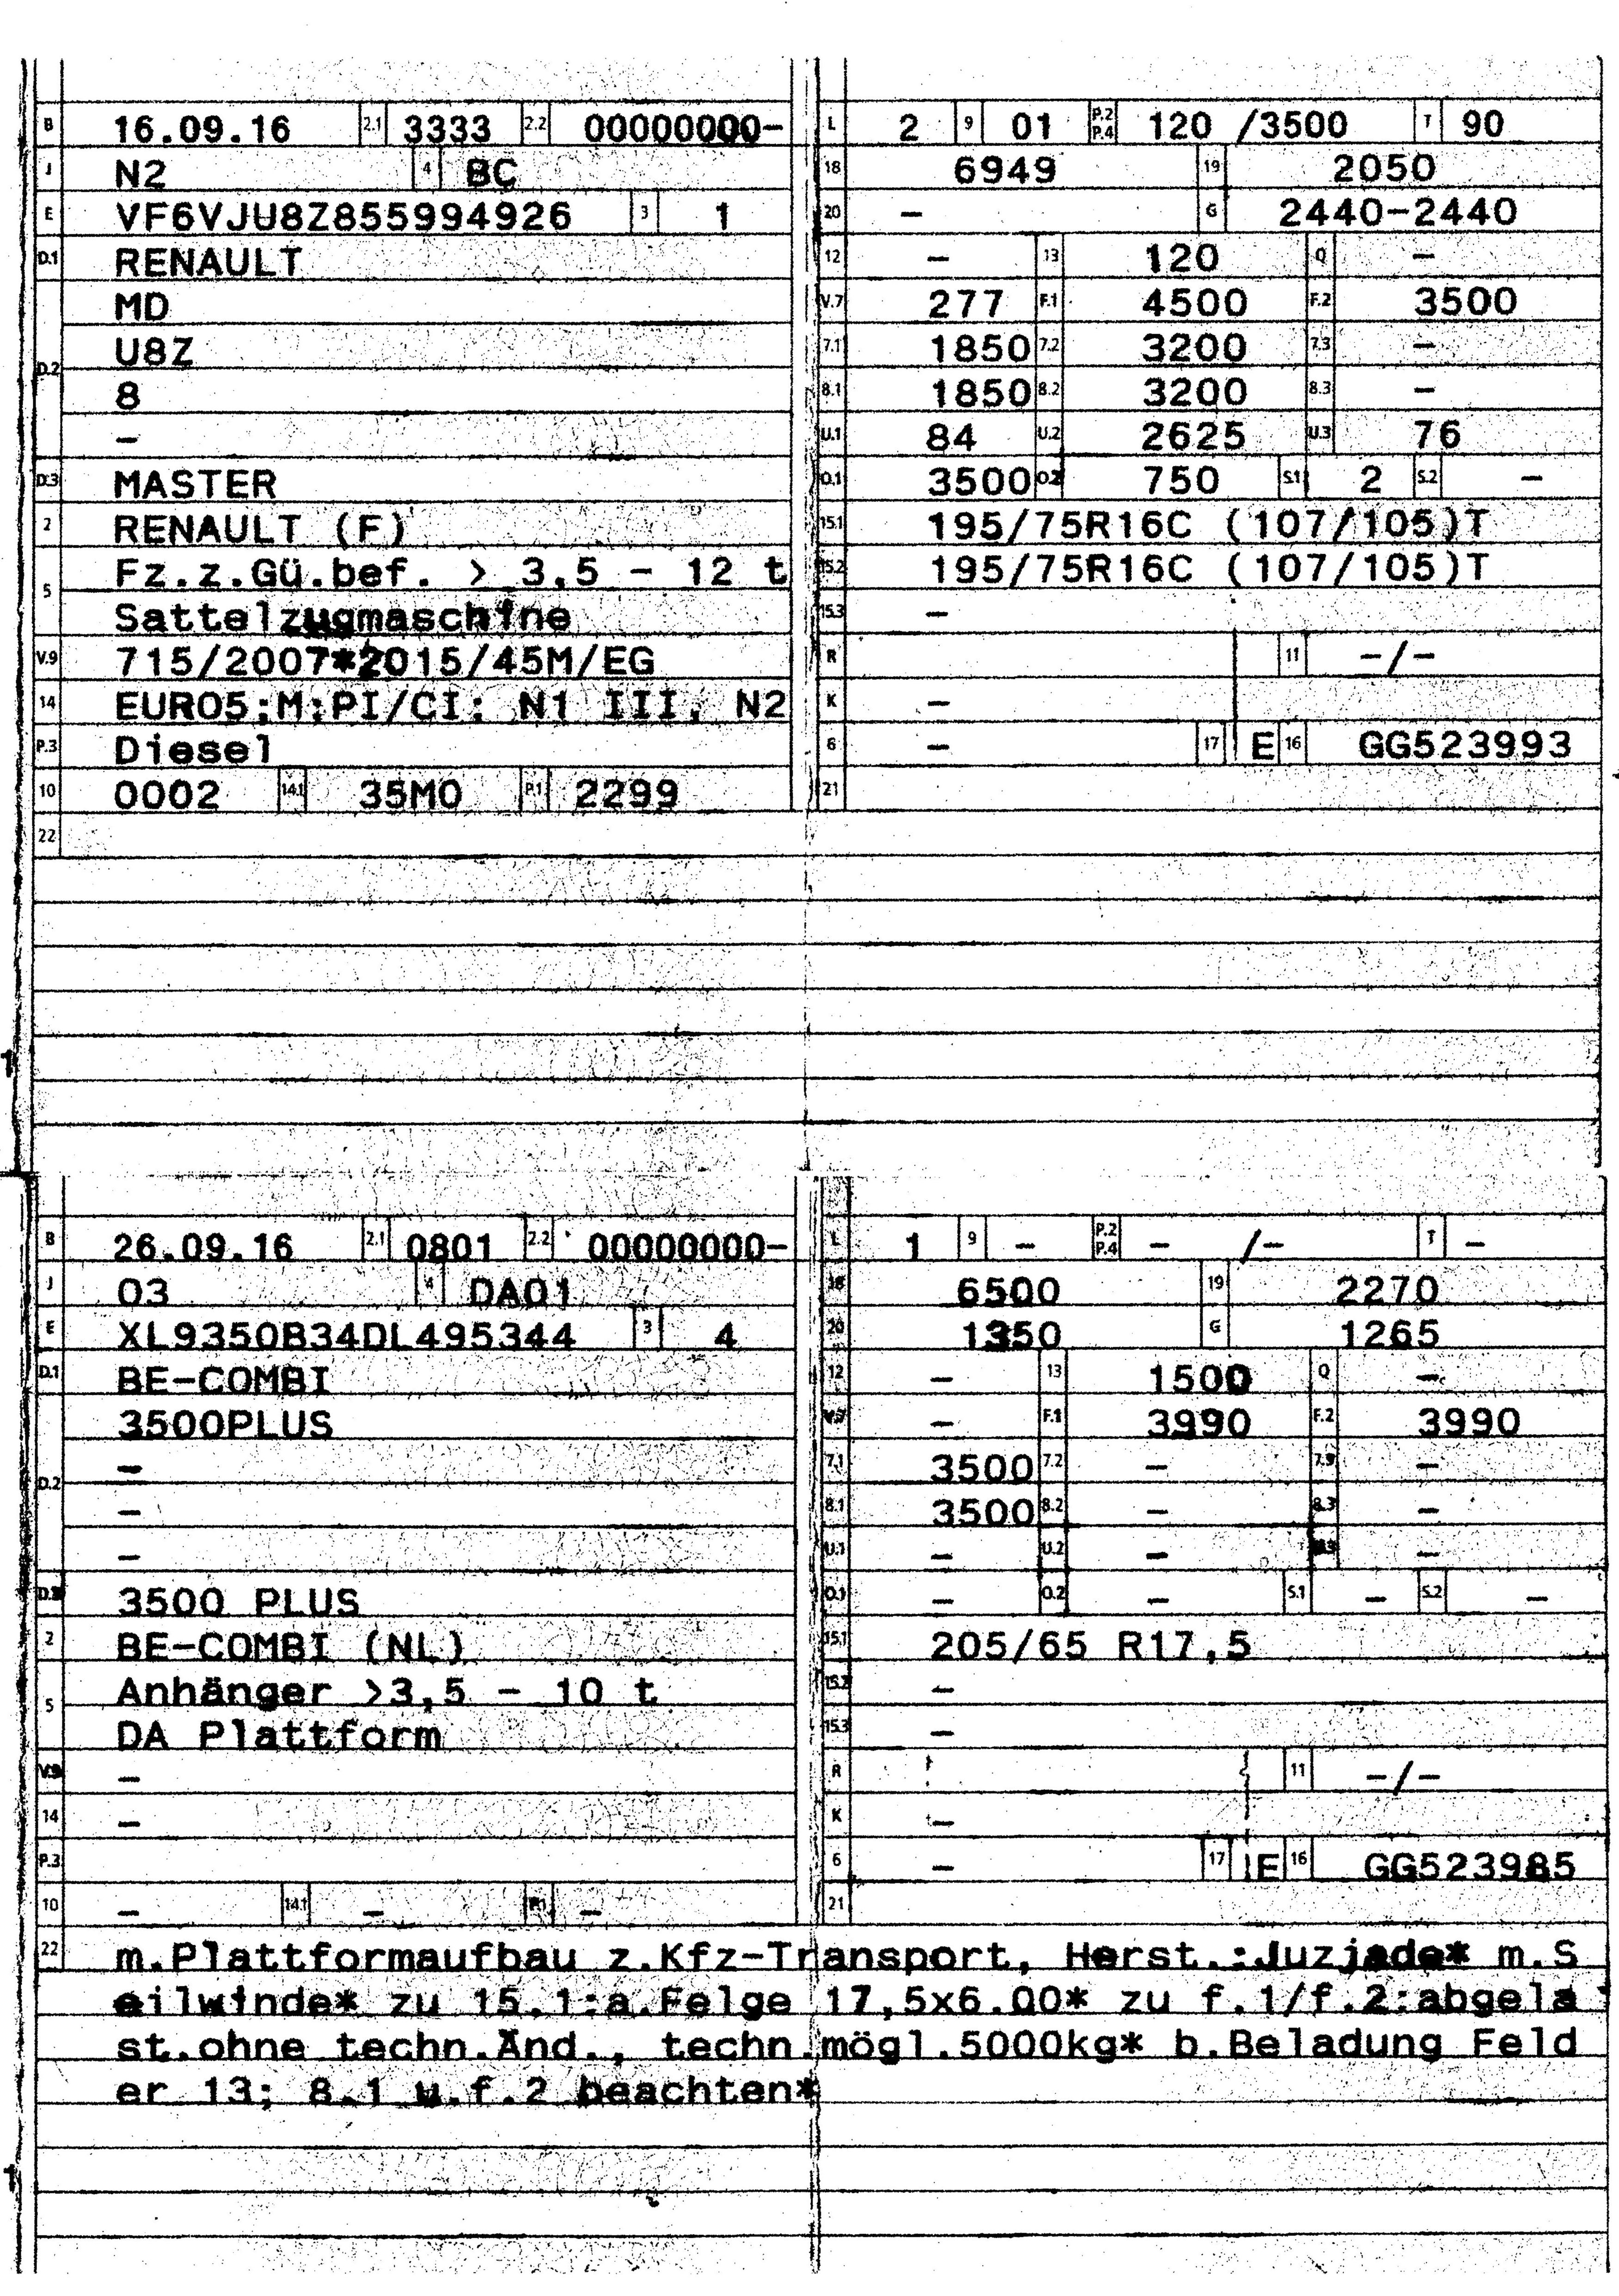 B 16.09.16 2.1 3333 2.2 00000000- L 2 9 01 P.2 P.4 120 /3500 T 90
J N2 4 BC 18 6949 19 2050
E VF6VJU8Z855994926 3 1 20 - G 2440-2440
D.1 RENAULT 12 - 13 120 Q -
MD V.7 277 F.1 4500 F.2 3500
D.2 U8Z 7.1 1850 7.2 3200 7.3 -
8 8.1 1850 8.2 3200 8.3 -
- U.1 84 U.2 2625 U.3 76
D.3 MASTER O.1 3500 O.2 750 S.1 2 S.2 -
2 RENAULT (F) 15.1 195/75R16C (107/105)T
5 Fz.z.Gü.bef. > 3,5 - 12 t 15.2 195/75R16C (107/105)T
Sattelzugmaschine 15.3 -
V.9 715/2007*2015/45M/EG R 11 -/-
14 EURO5;M;PI/CI; N1 III, N2 K -
P.3 Diesel 6 - 17 E 16 GG523993
10 0002 14.1 35M0 P.1 2299 21
22
B 26.09.16 2.1 0801 2.2 00000000- L 1 9 - P.2 P.4 - /- T -
J O3 4 DA01 18 6500 19 2270
E XL9350B34DL495344 3 4 20 1350 G 1265
D.1 BE-COMBI 12 - 13 1500 Q -
3500PLUS V.7 - F.1 3990 F.2 3990
D.2 - 7.1 3500 7.2 - 7.3 -
- 8.1 3500 8.2 - 8.3 -
- U.1 - U.2 - U.3 -
D.3 3500 PLUS O.1 - O.2 - S.1 - S.2 -
2 BE-COMBI (NL) 15.1 205/65 R17,5
5 Anhänger >3,5 - 10 t 15.2 -
DA Plattform 15.3 -
V.9 - R 11 -/-
14 - K -
P.3 6 - 17 E 16 GG523985
10 - 14.1 - P.1 - 21
22 m.Plattformaufbau z.Kfz-Transport, Herst.:Juzjade* m.S
eilwinde* zu 15.1:a.Felge 17,5x6.00* zu f.1/f.2:abgela
st.ohne techn.Änd., techn.mögl.5000kg* b.Beladung Feld
er 13; 8.1 u.f.2 beachten*